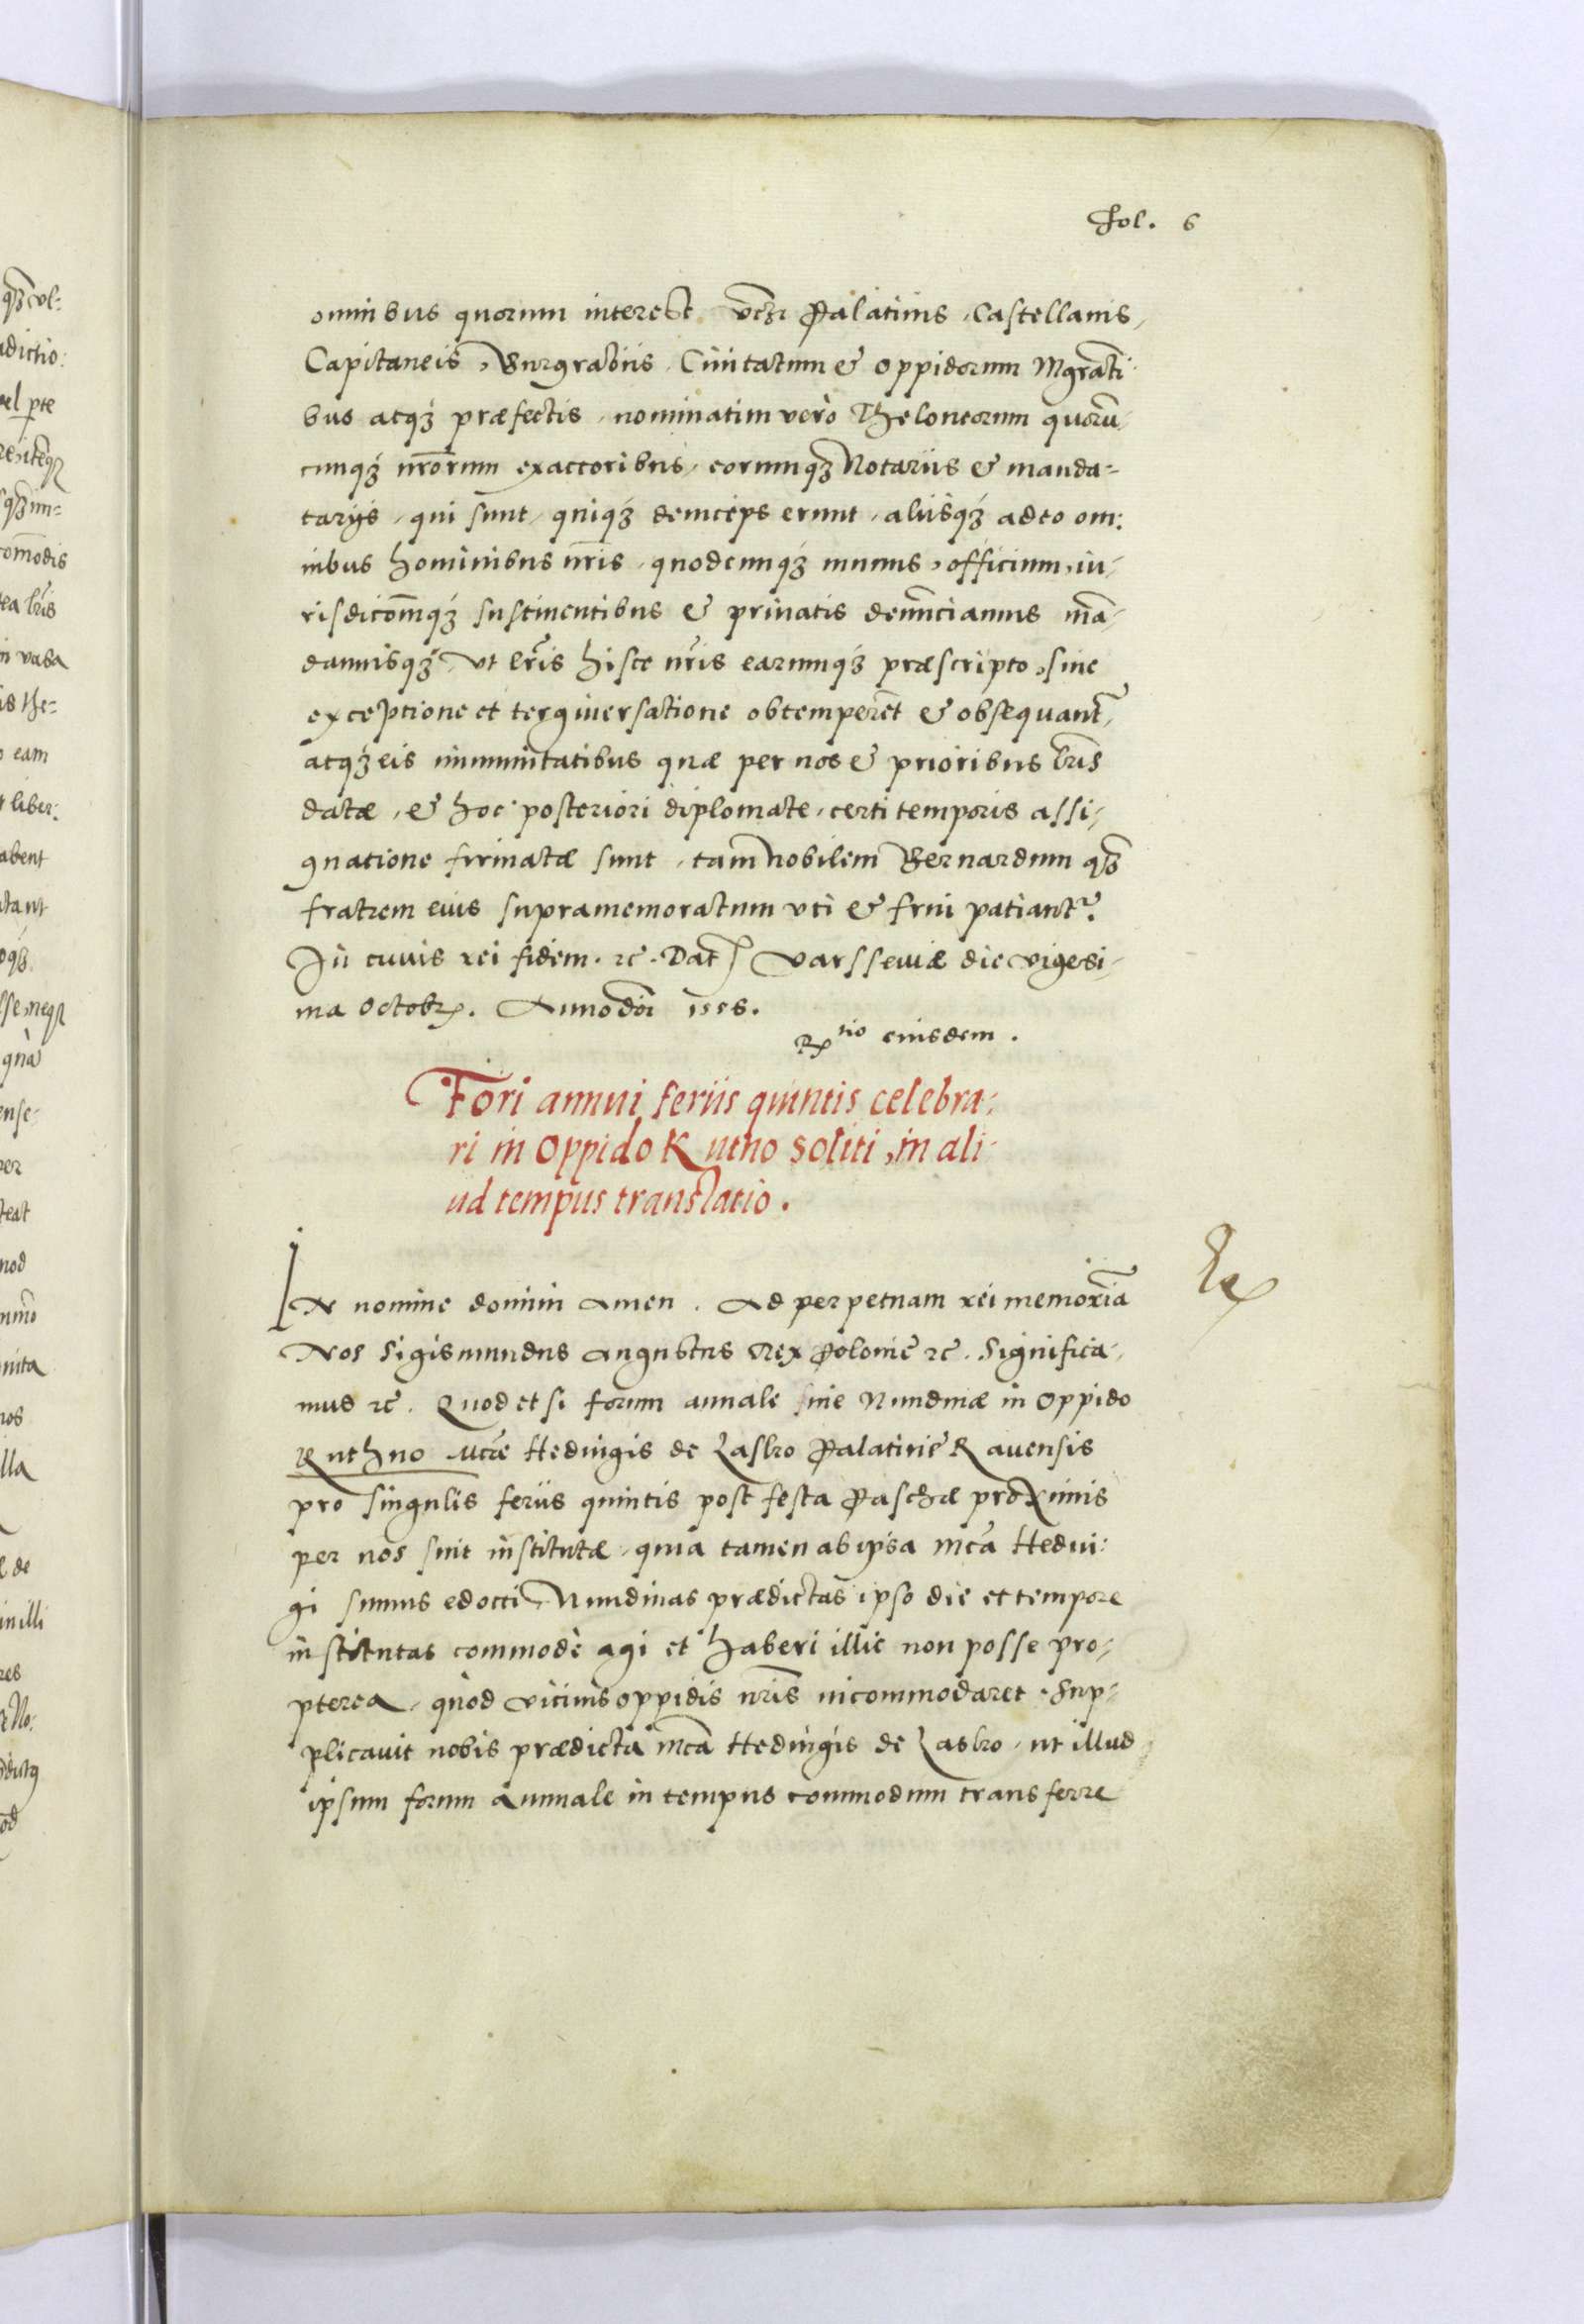 Fol. 6
omnibus quorum interest vcz Palatinis, Castellanis,
Capitaneis, Burgrabiis, Ciuitatum & oppidorum Mgrati
bus atqз præfectis, nominatim verò Theloneorum quorū,
cunqз nrorum exactoribus, eorumqз Notariis & manda-
tarijs, qui sunt, quiqз deinceps erunt, aliisqз adeo om:
nibus hominibus nris, quodcunqз munus, officium, iu,
risdicomqз sustinentibus & priuatis denunciamus mā,
damusqз, vt lris hisce nris earumqз præscripto, sine
exceptione et tergiuersatione obtemperēt & obsequant,
atqз eis immunitatibus quæ per nos & prioribus lris
datæ, & hoc posteriori diplomate, certi temporis assi,
gnatione firmatæ sunt, tam nobilem Bernardum qз
fratrem eius supramemoratum vti & frui patiant.
In cuius rei fidem. etc. Dat Varsseuiæ die vigesi,
ma Octobr. Anno doi 1556.
Rtio eiusdem.
Fori annui feriis quintis celebra:
ri in Oppido Kutno soliti, in ali
ud tempus translatio.
In nomine domini Amen. Ad perpetuam rei memoriā
Ex
Nos Sigismundus Augustus Rex Polonie etc. Significa,
mus etc. Quod et si forum annale siue Nundinæ in Oppido
Kuthno Mcæ Heduigis de Lasko Palatinę Rauensis
pro singulis feriis quintis post festa Paschæ proximis
per nos sint institutæ, quia tamen ab ipsa Mca Hedui:
gi sumus edocti, Nundinas prædictas ipso die et tempore
institutas commodè agi et haberi illic non posse pro,
pterea, quòd vicinis oppidis nris incommodaret. Sup-
plicauit nobis prædicta Mca Heduigis de Lasko, ut illud
ipsum forum Annuale in tempus commodum transferre